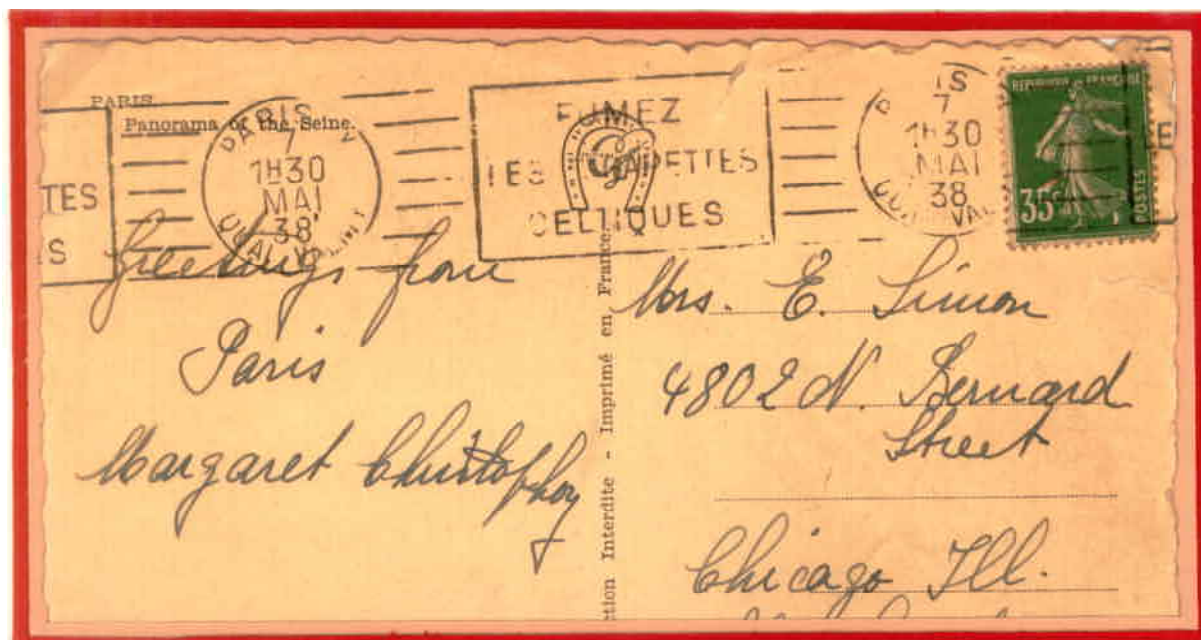 PARIS.
Panorama of the Seine.
PARIS
7
1H30
MAI
38
TES
S
FUMEZ
LES
CELTIQUES
7
1H30
MAI
38
REPUBLIQUE FRANÇAISE
35c
POSTES
Greetings from
Paris
Margaret
Interdite - Imprimé en France.
Mrs. E. Simon
4802 N. Bernard
Street
Chicago Ill.